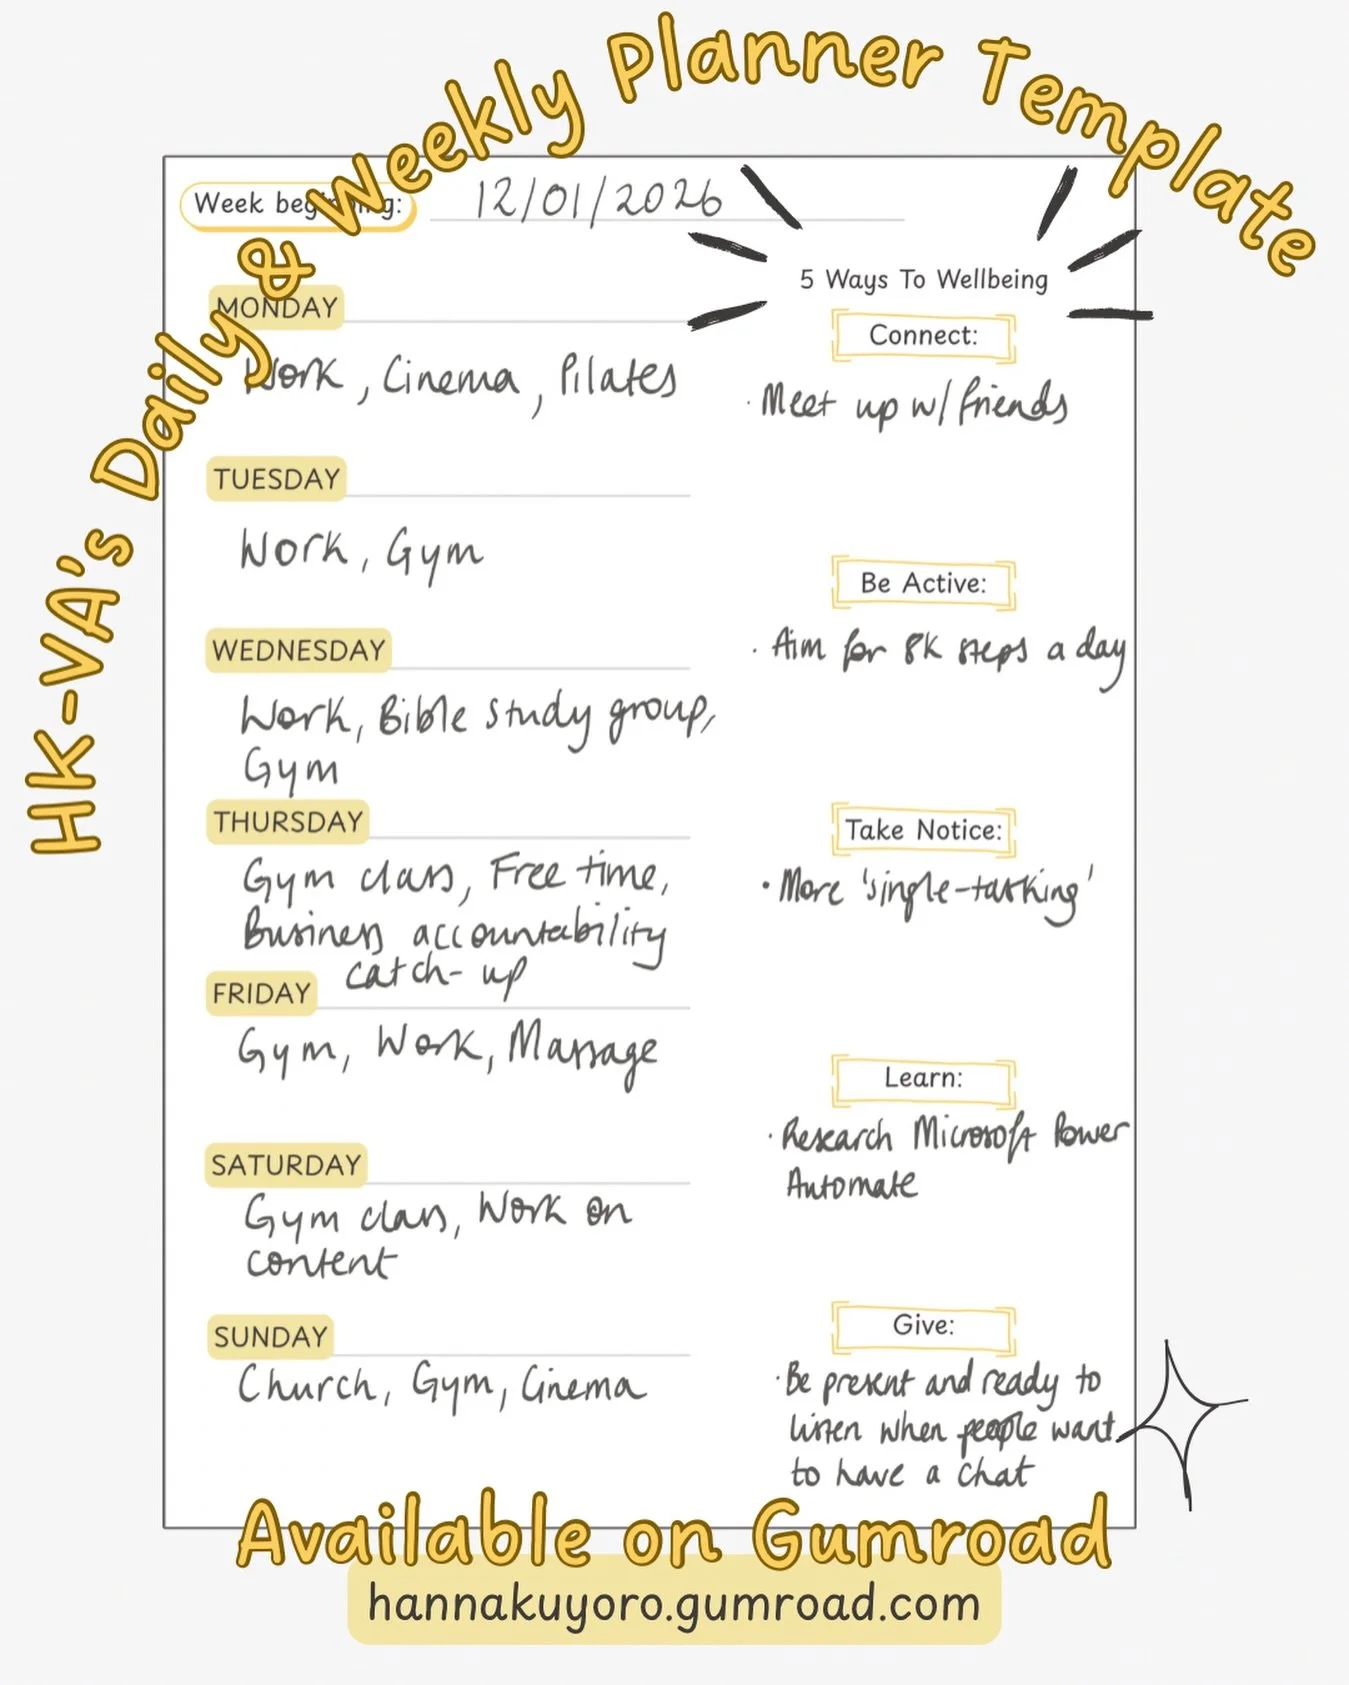 HK-VA's Daily & Weekly Planner Template
Week beginning: 12/01/2026
MONDAY
Work, Cinema, Pilates
TUESDAY
Work, Gym
WEDNESDAY
Work, Bible study group,
Gym
THURSDAY
Gym class, Free time,
Business accountability
catch-up
FRIDAY
Gym, Work, Massage
SATURDAY
Gym class, Work on
content
SUNDAY
Church, Gym, Cinema
5 Ways To Wellbeing
Connect:
· Meet up w/ friends
Be Active:
· Aim for 8K steps a day
Take Notice:
· More 'single-tasking'
Learn:
· Research Microsoft Power
Automate
Give:
· Be present and ready to
listen when people want
to have a chat
Available on Gumroad
hannakuyoro.gumroad.com